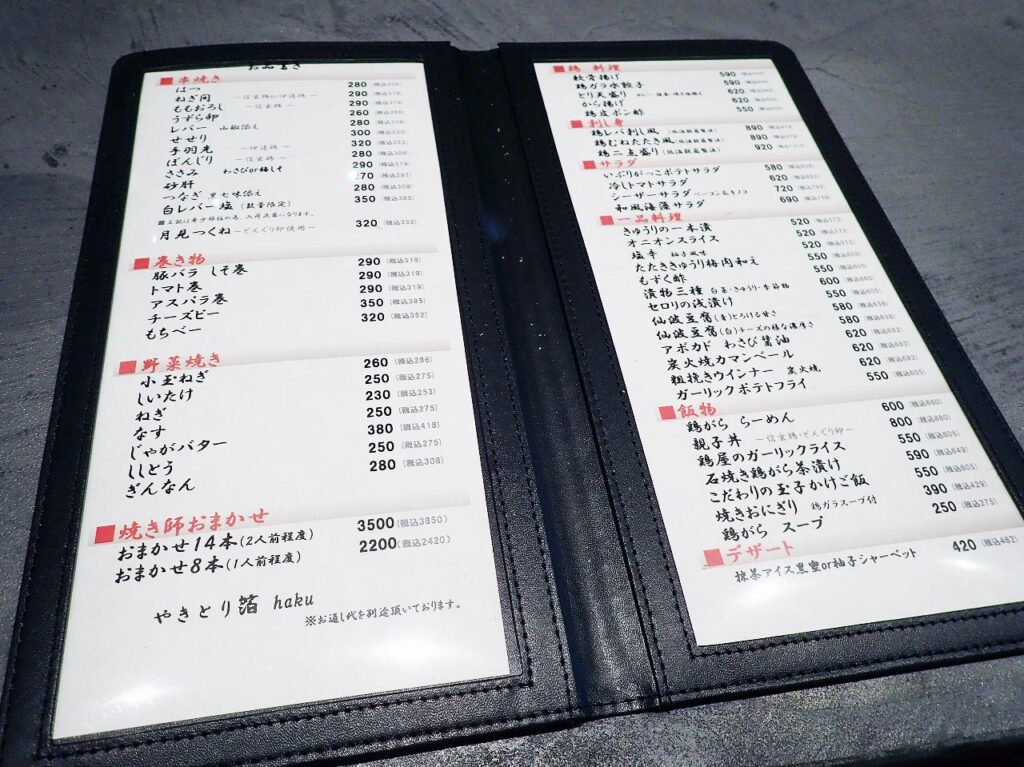 お品書き
■串焼き
はつ 280(税込308)
ねぎ間 ～信玄鶏or伊達鶏～ 290(税込319)
ももおろし ～信玄鶏～ 290(税込319)
うずら卵 260(税込286)
レバー 山椒添え 280(税込308)
せせり 300(税込330)
手羽先 ～伊達鶏～ 320(税込352)
ぼんじり ～信玄鶏～ 280(税込308)
ささみ わさびor梅しそ 290(税込319)
砂肝 270(税込297)
つなぎ 黒七味添え 280(税込308)
白レバー塩 (数量限定) 350(税込385)
■上記は希少部位の為、入荷次第になります。
月見つくね～どんぐり卵使用～ 320(税込352)
■巻き物
豚バラ しそ巻 290(税込319)
トマト巻 290(税込319)
アスパラ巻 290(税込319)
チーズピー 350(税込385)
もちベー 320(税込352)
■野菜焼き
小玉ねぎ 260(税込286)
しいたけ 250(税込275)
ねぎ 230(税込253)
なす 250(税込275)
じゃがバター 380(税込418)
ししとう 250(税込275)
ぎんなん 280(税込308)
■焼き師おまかせ
おまかせ14本(2人前程度) 3500(税込3850)
おまかせ8本(1人前程度) 2200(税込2420)
やきとり箔 haku
※お通し代を別途頂いております。
■鶏 料理
軟骨揚げ 590
鶏ガラ水餃子 590
とり天盛り 620
から揚げ 620
鶏皮ポン酢 550
■刺し身
鶏レバ刺し風 (低温殺菌製法) 890
鶏むねたたき風 (低温殺菌製法) 890
鶏二点盛り (低温殺菌製法) 920
■サラダ
いぶりがっこポテトサラダ 580
冷しトマトサラダ 620
シーザーサラダ ベーコン&キノコ 720
和風海藻サラダ 690
■一品料理
きゅうりの一本漬 520(税込572)
オニオンスライス 520(税込572)
塩辛 柚子風味 520(税込572)
たたききゅうり梅肉和え 550(税込605)
もずく酢 550(税込605)
漬物三種 白菜・きゅうり・季節物 600(税込660)
セロリの浅漬け 550(税込605)
仙波豆腐(青)とろける甘さ 580(税込638)
仙波豆腐(白)チーズの様な濃厚さ 580(税込638)
アボカド わさび醤油 620(税込682)
炭火焼カマンベール 620(税込682)
粗挽きウインナー 炭火焼 620(税込682)
ガーリックポテトフライ 550(税込605)
■飯物
鶏がら らーめん 600(税込660)
親子丼 ～信玄鶏・どんぐり卵～ 800(税込880)
鶏屋のガーリックライス 550(税込605)
石焼き鶏がら茶漬け 590(税込649)
こだわりの玉子かけご飯 550(税込605)
焼きおにぎり 鶏ガラスープ付 390(税込429)
鶏がら スープ 250(税込275)
■デザート
抹茶アイス黒蜜or柚子シャーベット 420(税込462)